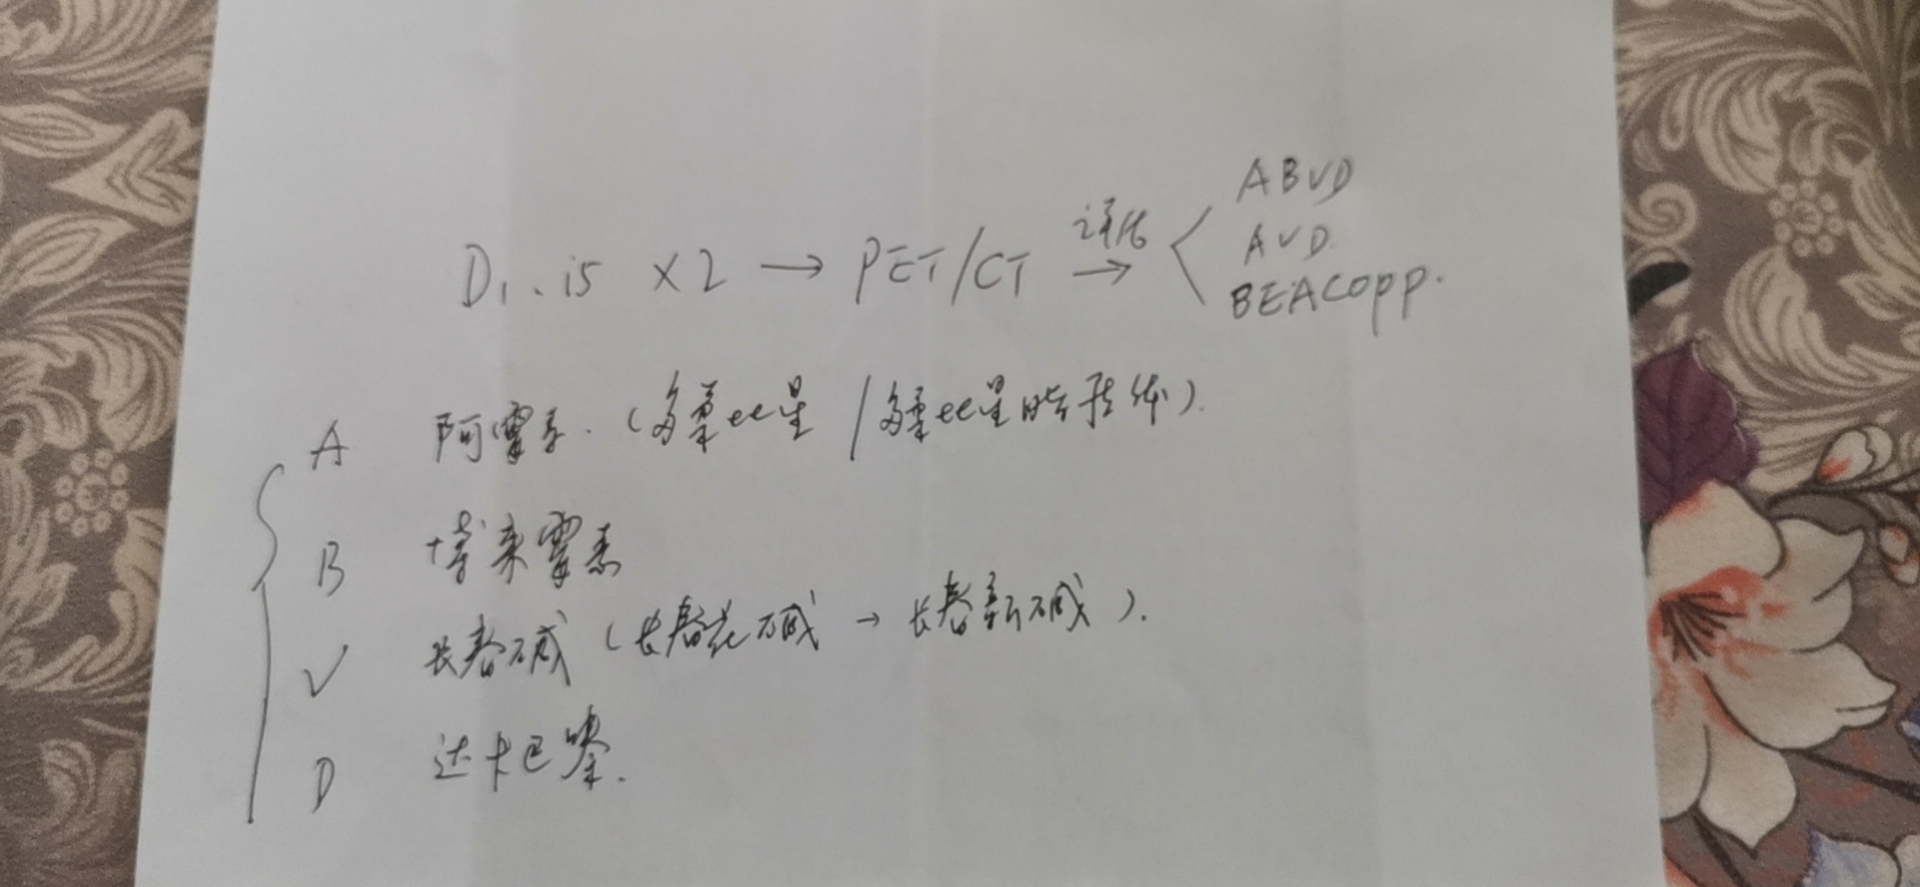 D1.15 ×2 → PET/CT 评估→ < ABVD
AVD.
BEACOPP.
A 阿霉素.(多柔比星/多柔比星脂质体).
B 博来霉素
V 长春碱(长春花碱→长春新碱).
D 达卡巴嗪.